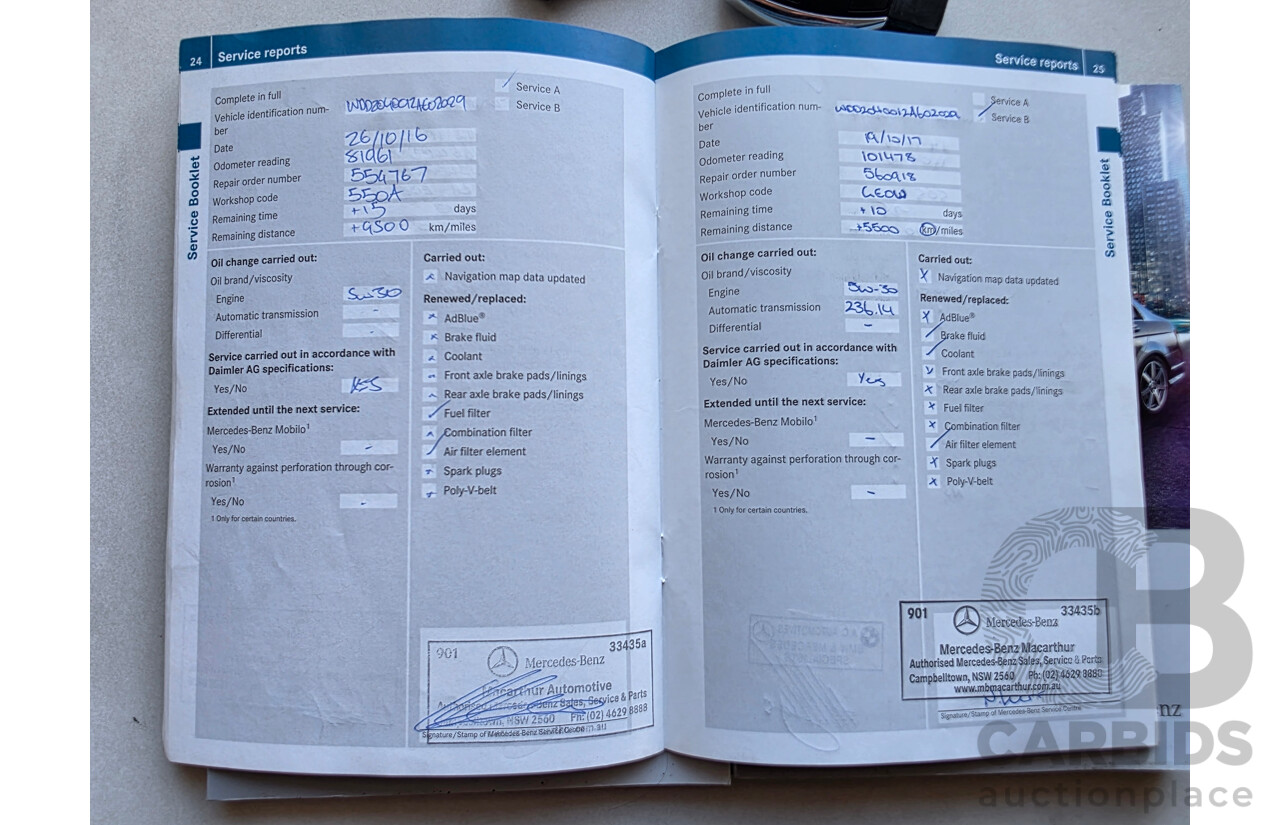 24 Service reports
Complete in full
Service A
Vehicle identification num-
ber
WDD2040012A602029
Service B
Date 26/10/16
Odometer reading 81961
Repair order number 554767
Workshop code 550A
Remaining time +15 days
Remaining distance +9500 km/miles
Service Booklet
Oil change carried out:
Oil brand/viscosity
Engine 5w30
Automatic transmission -
Differential -
Service carried out in accordance with
Daimler AG specifications:
Yes/No YES
Extended until the next service:
Mercedes-Benz Mobilo1
Yes/No -
Warranty against perforation through cor-
rosion1
Yes/No -
1 Only for certain countries.
Carried out:
Navigation map data updated
Renewed/replaced:
AdBlue®
Brake fluid
Coolant
Front axle brake pads/linings
Rear axle brake pads/linings
Fuel filter
Combination filter
Air filter element
Spark plugs
Poly-V-belt
901 33435a
Mercedes-Benz
Macarthur Automotive
Authorised Mercedes-Benz Sales, Service & Parts
Campbelltown, NSW 2560 Ph: (02) 4629 8888
Signature/Stamp of Mercedes-Benz Service Centre
Service reports 25
Complete in full
Service A
Vehicle identification num-
ber
WDD2040012A602029
Service B
Date 19/10/17
Odometer reading 101478
Repair order number 560918
Workshop code
Remaining time +10 days
Remaining distance +5500 km/miles
Service Booklet
Oil change carried out:
Oil brand/viscosity
Engine 5w-30
Automatic transmission 236.14
Differential -
Service carried out in accordance with
Daimler AG specifications:
Yes/No Yes
Extended until the next service:
Mercedes-Benz Mobilo1
Yes/No -
Warranty against perforation through cor-
rosion1
Yes/No -
1 Only for certain countries.
Carried out:
X Navigation map data updated
Renewed/replaced:
X AdBlue®
Brake fluid
Coolant
X Front axle brake pads/linings
X Rear axle brake pads/linings
X Fuel filter
X Combination filter
Air filter element
X Spark plugs
X Poly-V-belt
901 33435b
Mercedes-Benz
Mercedes-Benz Macarthur
Authorised Mercedes-Benz Sales, Service & Parts
Campbelltown, NSW 2560 Ph: (02) 4629 8880
www.mbmacarthur.com.au
Signature/Stamp of Mercedes-Benz Service Centre
nz
CARBIDS
auctionplace